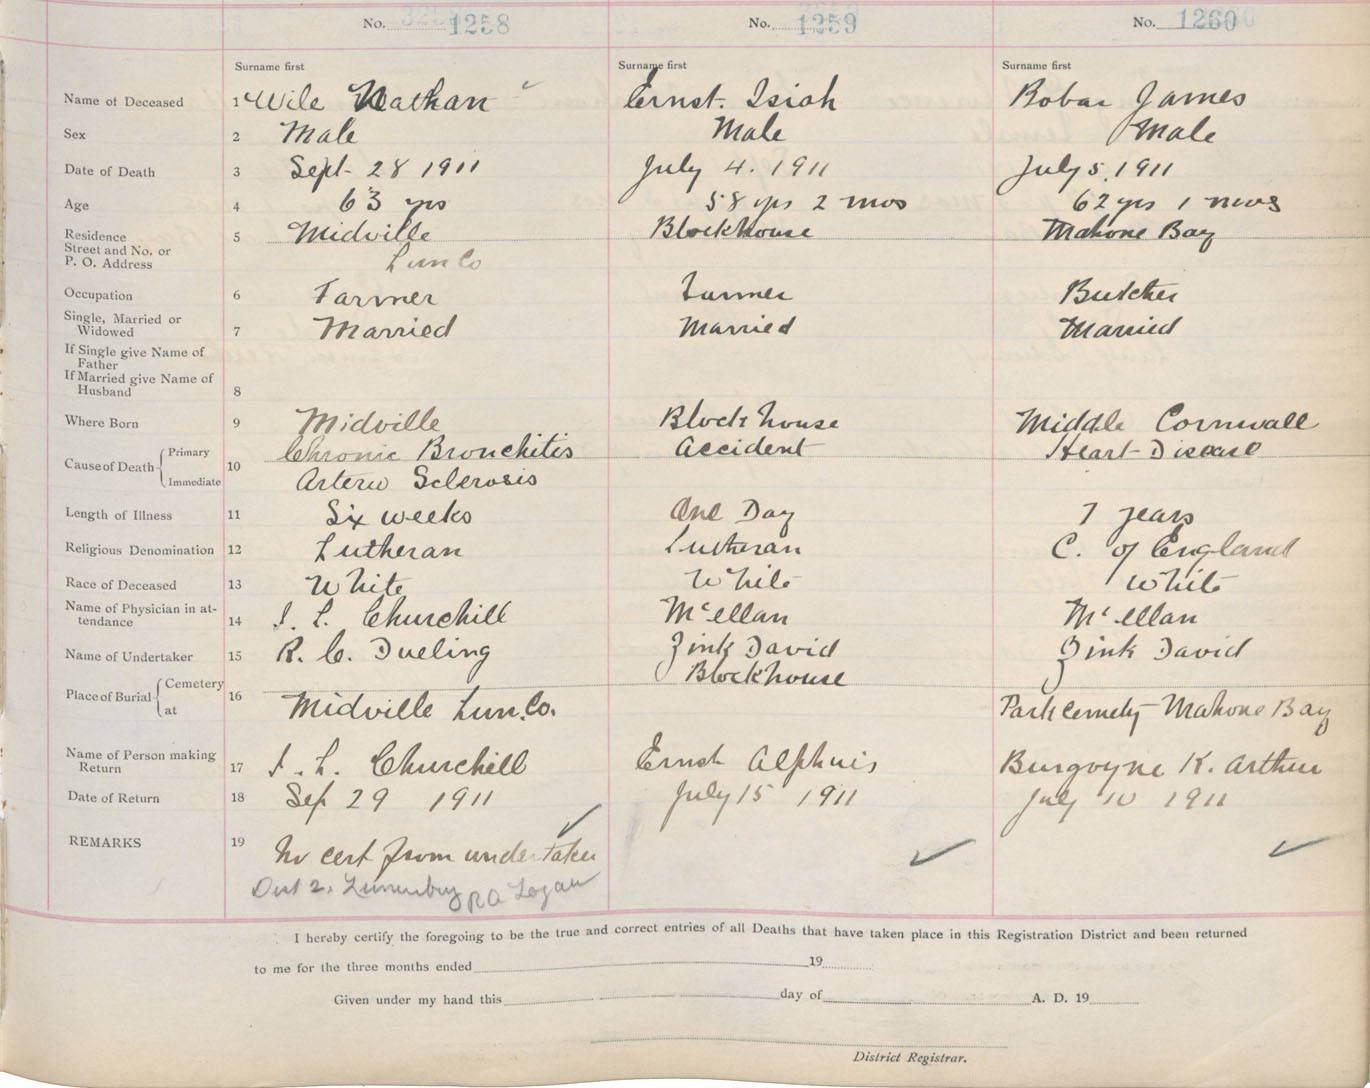 No. 1258 No. 1259 No. 1260
Surname first Surname first Surname first
Name of Deceased 1 Wile Nathan Ernst. Isiah Bobar James
Sex 2 Male Male Male
Date of Death 3 Sept. 28 1911 July 4. 1911 July 5. 1911
Age 4 63 yrs 58 yrs 2 mos 62 yrs 1 mos
Residence 5 Midville Blockhouse Mahone Bay
Street and No. or
P. O. Address Lun Co
Occupation 6 Farmer Farmer Butcher
Single, Married or
Widowed 7 Married Married Married
If Single give Name of
Father
If Married give Name of
Husband 8
Where Born 9 Midville Blockhouse Middle Cornwall
Cause of Death Primary 10 Chronic Bronchitis Accident Heart Disease
Immediate Arterio Sclerosis
Length of Illness 11 Six weeks One Day 7 years
Religious Denomination 12 Lutheran Lutheran C. of England
Race of Deceased 13 White White White
Name of Physician in at-
tendance 14 I. L. Churchill McEllan McEllan
Name of Undertaker 15 R. C. Dueling Zink David Zink David
Place of Burial Cemetery 16 Blockhouse
at Midville Lun. Co. Park Cemety Mahone Bay
Name of Person making
Return 17 I. L. Churchill Ernst Alphuis Burgoyne K. Arthur
Date of Return 18 Sep 29 1911 July 15 1911 July 10 1911
REMARKS 19 No cert from undertaker
Dist 2. Lunenburg RA Logan
I hereby certify the foregoing to be the true and correct entries of all Deaths that have taken place in this Registration District and been returned
to me for the three months ended 19
Given under my hand this day of A. D. 19
District Registrar.